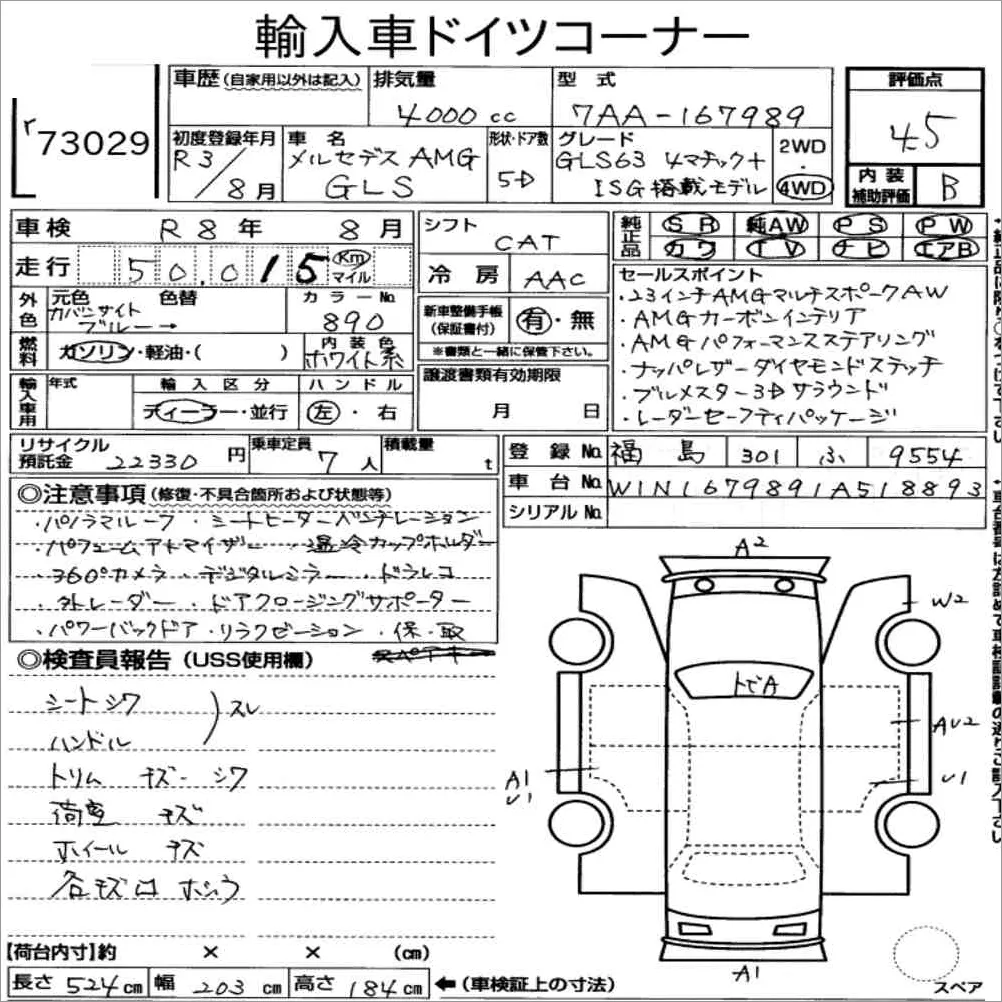 輸入車ドイツコーナー
r 73029
車歴(自家用以外は記入)
排気量
4000 cc
型式
7AA-167989
評価点
4.5
初度登録年月
R3/8月
車名
メルセデスAMG
GLS
形状・ドア数
5D
グレード
GLS63 4マチック+
ISG搭載モデル
2WD
・
4WD
内装
補助評価
B
車検 R8年 8月
走行 50,015 Km マイル
シフト
CAT
冷房 AAC
純正品
SR 純AW PS PW
カワ TV ナビ エアB
外色
元色
カバンサイト
ブルー→
色替
カラーNo
890
新車整備手帳
(保証書付)
有・無
※書類と一緒に保管下さい。
セールスポイント
・23インチAMGマルチスポークAW
・AMGカーボンインテリア
・AMGパフォーマンスステアリング
・ナッパレザーダイヤモンドステッチ
・ブルメスター3Dサラウンド
・レーダーセーフティパッケージ
燃料
ガソリン・軽油・( )
内装色
ホワイト系
輸入車用
年式
輸入区分
ディーラー・並行
ハンドル
左・右
譲渡書類有効期限
月 日
リサイクル
預託金 22330円
乗車定員
7人
積載量
t
登録No 福島 301 ふ 9554
車台No W1N1679891A518893
シリアルNo
◎注意事項(修復・不具合箇所および状態等)
・パノラマルーフ ・シートヒーターベンチレーション
・パフュームアトマイザー ・温冷カップホルダー
・360°カメラ ・デジタルミラー ・ドラレコ
・外レーダー ・ドアクロージングサポーター
・パワーバックドア ・リラクゼーション ・保・取
◎検査員報告(USS使用欄)
シートシワ
ハンドル
スレ
トリム キズ・シワ
荷室 キズ
ホイール キズ
A2
W2
トビA
AU2
A1
U1
U1
A1
【荷台内寸】約 × × (cm)
長さ 524cm 幅 203cm 高さ 184cm ←(車検証上の寸法)
スペア